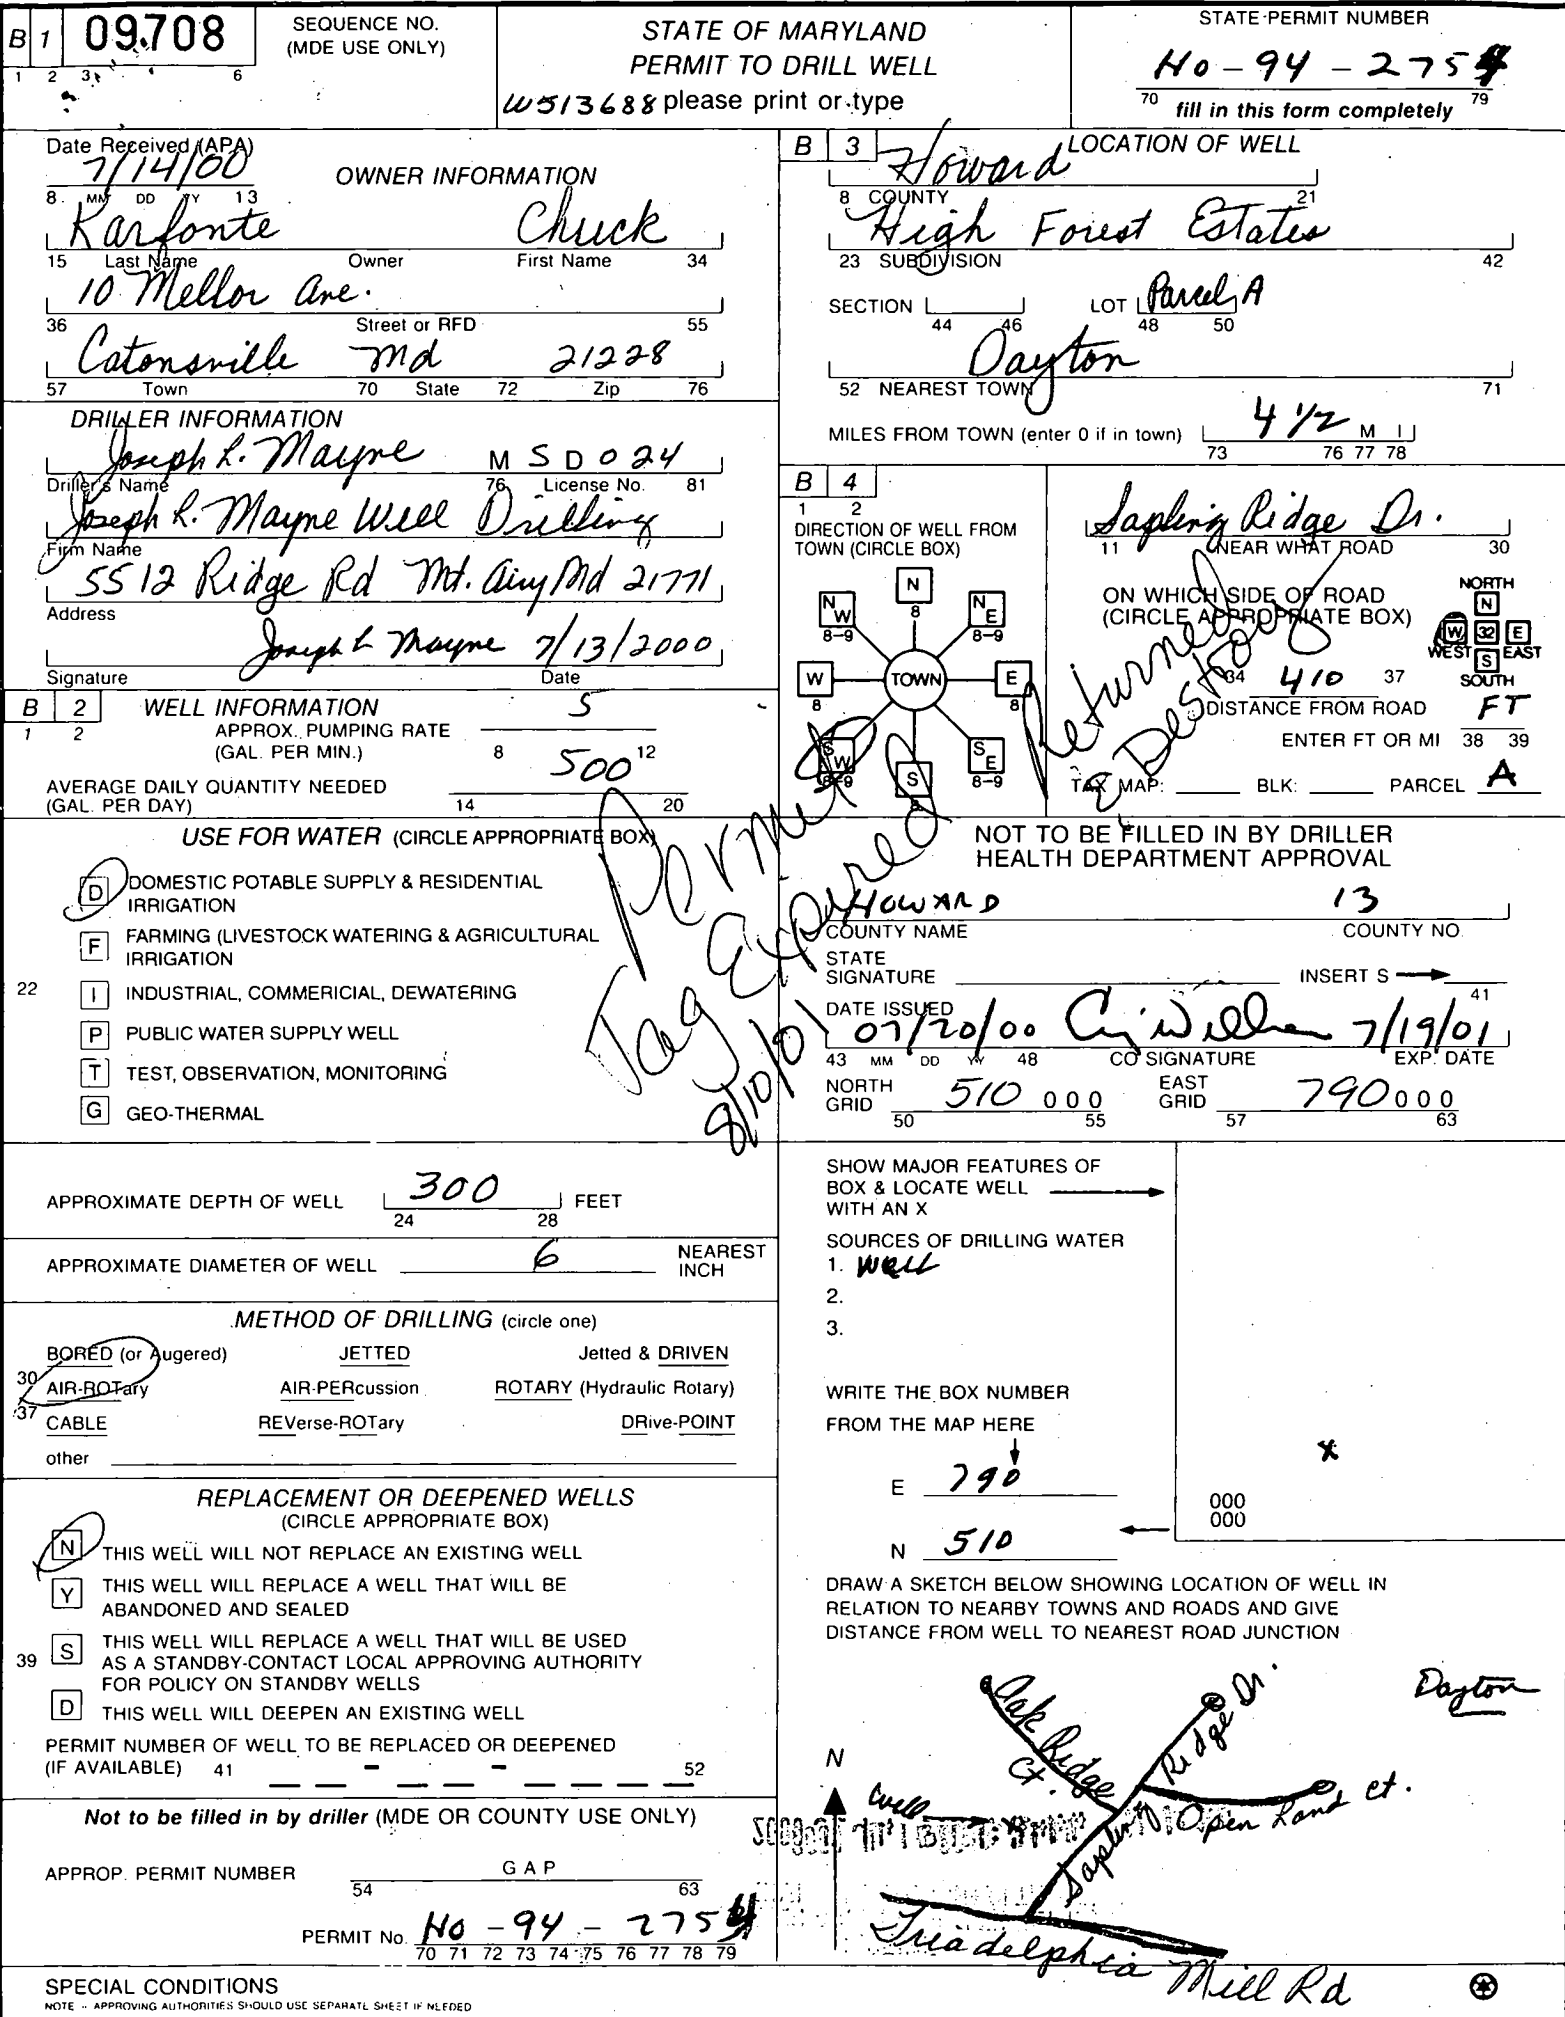 B 1 09708
1 2 3 6
SEQUENCE NO.
(MDE USE ONLY)
STATE OF MARYLAND
PERMIT TO DRILL WELL
W513688 please print or type
STATE PERMIT NUMBER
Ho - 94 - 2754
70 79
fill in this form completely
Date Received (APA)
7/14/00
8 MM DD YY 13
OWNER INFORMATION
Karfonte Chuck
15 Last Name Owner First Name 34
10 Mellor Ave.
36 Street or RFD 55
Catonsville Md 21228
57 Town 70 State 72 Zip 76
DRILLER INFORMATION
Joseph L. Mayne M S D 0 24
Driller's Name 76 License No. 81
Joseph L. Mayne Well Drilling
Firm Name
5512 Ridge Rd Mt. Airy Md 21771
Address
Joseph L Mayne 7/13/2000
Signature Date
B 2 WELL INFORMATION
1 2
APPROX. PUMPING RATE
(GAL. PER MIN.) 8 5 12
AVERAGE DAILY QUANTITY NEEDED
(GAL. PER DAY) 14 500 20
USE FOR WATER (CIRCLE APPROPRIATE BOX)
D DOMESTIC POTABLE SUPPLY & RESIDENTIAL
IRRIGATION
F FARMING (LIVESTOCK WATERING & AGRICULTURAL
IRRIGATION
22
I INDUSTRIAL, COMMERICIAL, DEWATERING
P PUBLIC WATER SUPPLY WELL
T TEST, OBSERVATION, MONITORING
G GEO-THERMAL
Permit
Tag Expired
8/10/01
Returned
& Destroy
APPROXIMATE DEPTH OF WELL 300 FEET
24 28
APPROXIMATE DIAMETER OF WELL 6 NEAREST
INCH
METHOD OF DRILLING (circle one)
BORED (or Augered) JETTED Jetted & DRIVEN
30 AIR-ROTary AIR-PERcussion ROTARY (Hydraulic Rotary)
37 CABLE REVerse-ROTary DRive-POINT
other
REPLACEMENT OR DEEPENED WELLS
(CIRCLE APPROPRIATE BOX)
N THIS WELL WILL NOT REPLACE AN EXISTING WELL
Y THIS WELL WILL REPLACE A WELL THAT WILL BE
ABANDONED AND SEALED
39 S THIS WELL WILL REPLACE A WELL THAT WILL BE USED
AS A STANDBY-CONTACT LOCAL APPROVING AUTHORITY
FOR POLICY ON STANDBY WELLS
D THIS WELL WILL DEEPEN AN EXISTING WELL
PERMIT NUMBER OF WELL TO BE REPLACED OR DEEPENED
(IF AVAILABLE) 41 - - 52
Not to be filled in by driller (MDE OR COUNTY USE ONLY)
APPROP. PERMIT NUMBER G A P
54 63
PERMIT No. Ho - 94 - 2754
70 71 72 73 74 75 76 77 78 79
SPECIAL CONDITIONS
NOTE - APPROVING AUTHORITIES SHOULD USE SEPARATE SHEET IF NEEDED
B 3 LOCATION OF WELL
Howard
8 COUNTY 21
High Forest Estates
23 SUBDIVISION 42
SECTION LOT Parcel A
44 46 48 50
Dayton
52 NEAREST TOWN 71
MILES FROM TOWN (enter 0 if in town) 4 1/2 M I
73 76 77 78
B 4
1 2
DIRECTION OF WELL FROM
TOWN (CIRCLE BOX)
N
8
NW NE
8-9 8-9
W TOWN E
8 8
SW S SE
8-9 8 8-9
Sapling Ridge Dr.
11 NEAR WHAT ROAD 30
ON WHICH SIDE OF ROAD
(CIRCLE APPROPRIATE BOX)
NORTH
N
W 32 E
WEST EAST
S
SOUTH
34 410 37
DISTANCE FROM ROAD FT
ENTER FT OR MI 38 39
TAX MAP: BLK: PARCEL A
NOT TO BE FILLED IN BY DRILLER
HEALTH DEPARTMENT APPROVAL
HOWARD 13
COUNTY NAME COUNTY NO.
STATE
SIGNATURE INSERT S
41
DATE ISSUED
07/20/00 7/19/01
43 MM DD YY 48 CO SIGNATURE EXP. DATE
NORTH
GRID 510 000
50 55
EAST
GRID 790 000
57 63
SHOW MAJOR FEATURES OF
BOX & LOCATE WELL
WITH AN X
SOURCES OF DRILLING WATER
1. well
2.
3.
WRITE THE BOX NUMBER
FROM THE MAP HERE
X
E 790
000
000
N 510
DRAW A SKETCH BELOW SHOWING LOCATION OF WELL IN
RELATION TO NEARBY TOWNS AND ROADS AND GIVE
DISTANCE FROM WELL TO NEAREST ROAD JUNCTION
Dayton
Oak Ridge Ct.
Sapling Ridge Dr.
N
Well
Open Land Ct.
Triadelphia Mill Rd